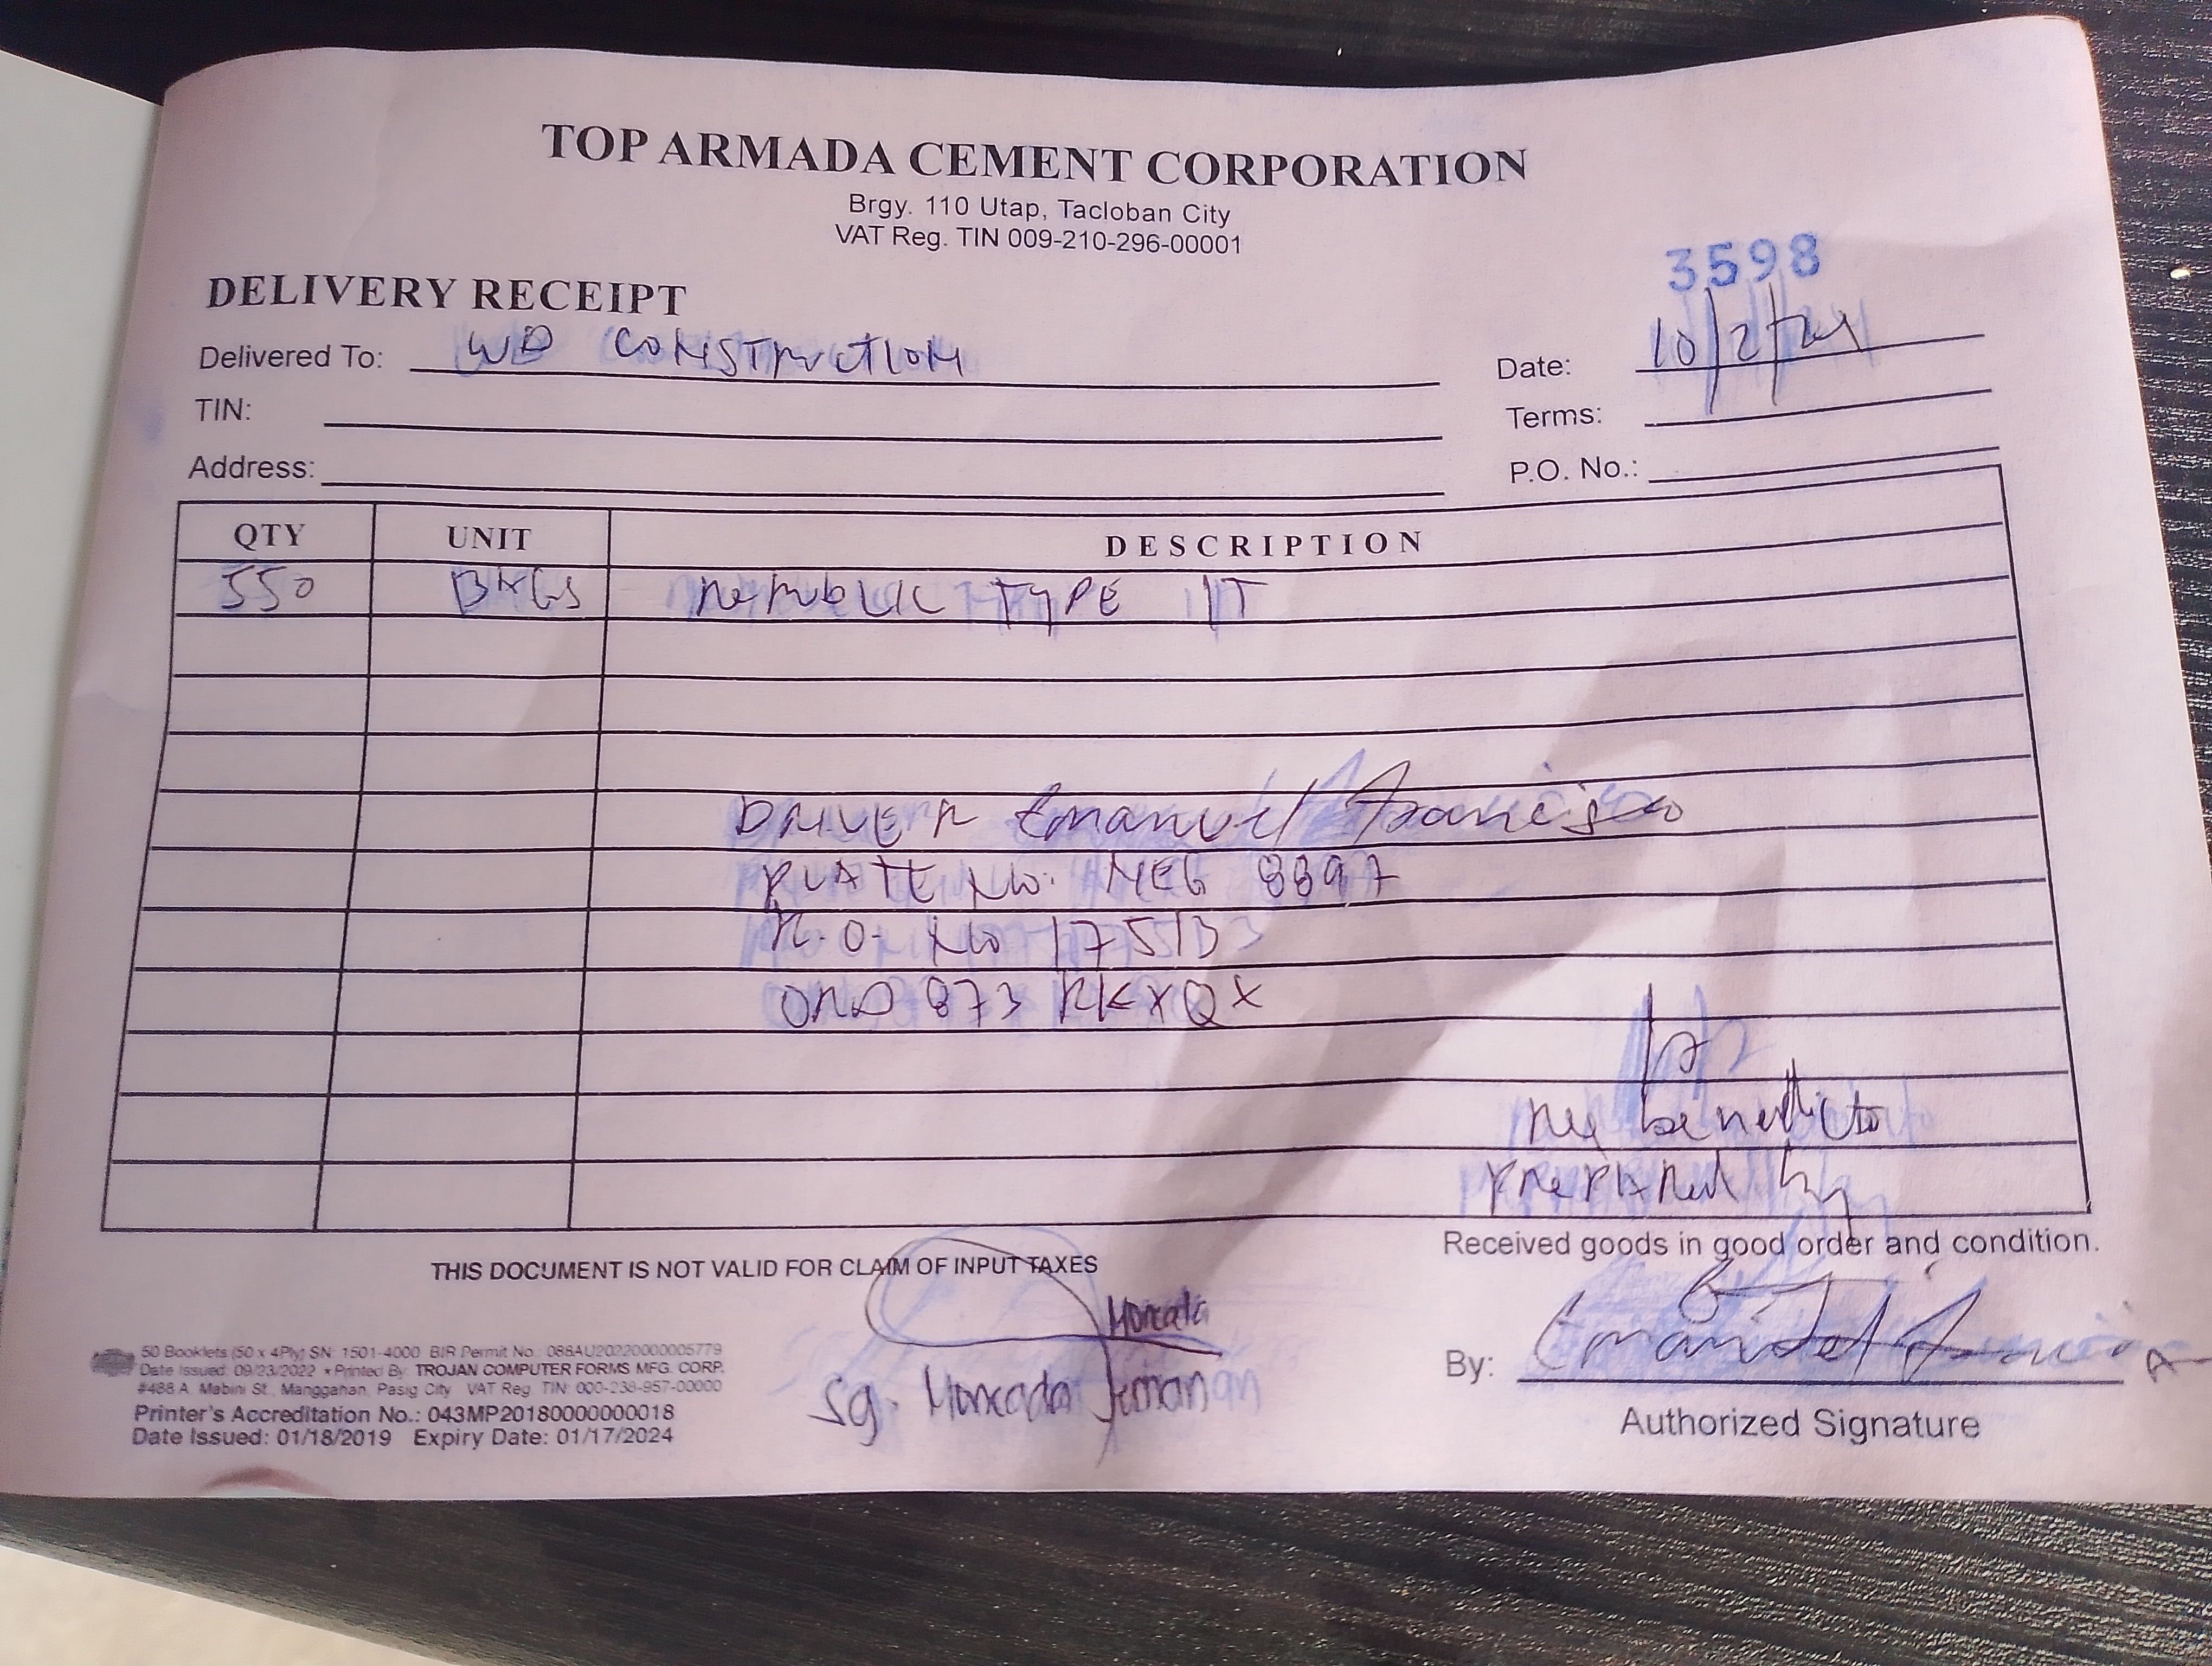 TOP ARMADA CEMENT CORPORATION
Brgy. 110 Utap, Tacloban City
VAT Reg. TIN 009-210-296-00001
3598
DELIVERY RECEIPT
Delivered To: WD CONSTRUCTION
Date: 10/2/24
TIN:
Terms:
Address:
P.O. No.:
QTY UNIT DESCRIPTION
550 BAGS REPUBLIC TYPE 1T
DRIVER Emanuel Francisco
PLATE NO. NEG 8897
R.O. NO 17513
ORD 873 RKXQX
Rey benedicto
PREPARED by
Received goods in good order and condition.
THIS DOCUMENT IS NOT VALID FOR CLAIM OF INPUT TAXES
Moncada
Sg. Moncada
By: Emanuel
Authorized Signature
50 Booklets (50 x 4Ply) SN: 1501-4000 BIR Permit No.: 088AU20220000005779
Date Issued: 09/23/2022 • Printed By: TROJAN COMPUTER FORMS MFG. CORP.
#488 A. Mabini St., Manggahan, Pasig City VAT Reg. TIN: 000-238-957-00000
Printer's Accreditation No.: 043MP20180000000018
Date Issued: 01/18/2019 Expiry Date: 01/17/2024